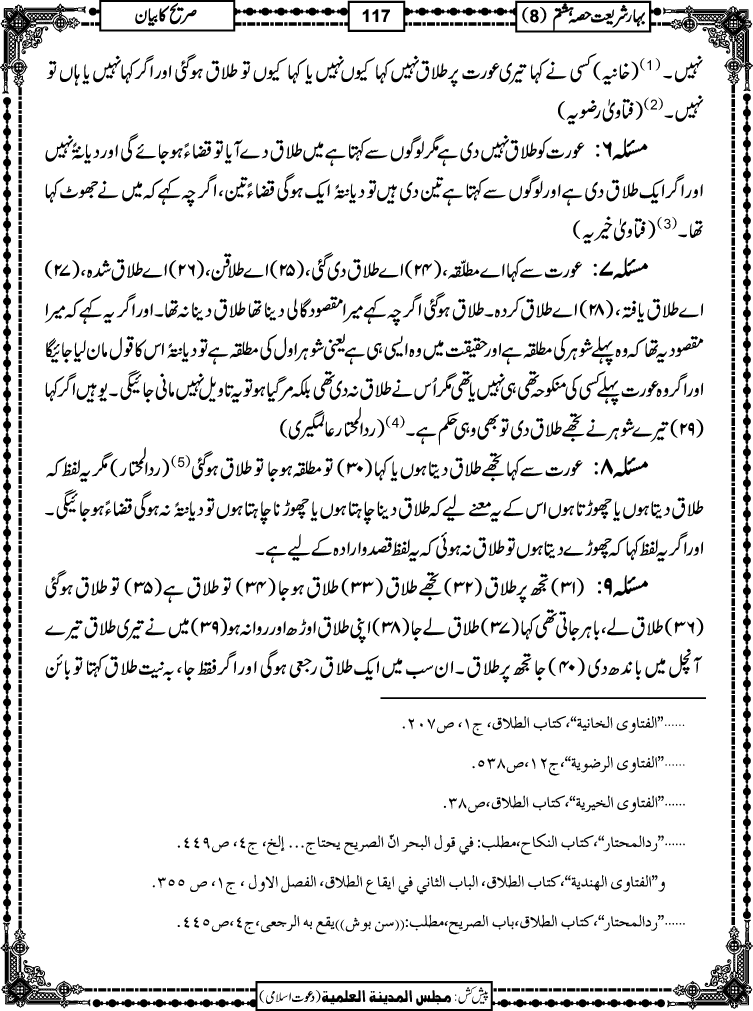 بہارِ شریعت حصہ ہشتم (8)
117
صریح کا بیان
نہیں۔(1) (خانیہ) کسی نے کہا تیری عورت پر طلاق نہیں کہا کیوں نہیں یا کہا کیوں تو طلاق ہوگئی اور اگر کہا نہیں یا ہاں تو
نہیں۔(2) (فتاویٰ رضویہ)
مسئلہ ۶: عورت کو طلاق نہیں دی ہے مگر لوگوں سے کہتا ہے میں طلاق دے آیا تو قضاءً ہو جائے گی اور دیانۃً نہیں
اور اگر ایک طلاق دی ہے اور لوگوں سے کہتا ہے تین دی ہیں تو دیانۃً ایک ہوگی قضاءً تین، اگر چہ کہے کہ میں نے جھوٹ کہا
تھا۔(3) (فتاویٰ خیریہ)
مسئلہ ۷: عورت سے کہا اے مطلّقہ، (۲۴) اے طلاق دی گئی، (۲۵) اے طلاقن، (۲۶) اے طلاق شدہ، (۲۷)
اے طلاق یافتہ، (۲۸) اے طلاق کردہ۔ طلاق ہوگئی اگر چہ کہے میرا مقصود گالی دینا تھا طلاق دینا نہ تھا۔ اور اگر یہ کہے کہ میرا
مقصود یہ تھا کہ وہ پہلے شوہر کی مطلقہ ہے اور حقیقت میں وہ ایسی ہی ہے یعنی شوہر اول کی مطلقہ ہے تو دیانۃً اس کا قول مان لیا جائیگا
اور اگر وہ عورت پہلے کسی کی منکوحہ تھی ہی نہیں یا تھی مگر اُس نے طلاق نہ دی تھی بلکہ مر گیا ہو تو یہ تاویل نہیں مانی جائیگی۔ یوہیں اگر کہا
(۲۹) تیرے شوہر نے تجھے طلاق دی تو بھی وہی حکم ہے۔(4) (ردالمحتار عالمگیری)
مسئلہ ۸: عورت سے کہا تجھے طلاق دیتا ہوں یا کہا (۳۰) تو مطلقہ ہو جا تو طلاق ہوگئی(5) (ردالمحتار) مگر یہ لفظ کہ
طلاق دیتا ہوں یا چھوڑتا ہوں اس کے یہ معنے لیے کہ طلاق دینا چاہتا ہوں یا چھوڑنا چاہتا ہوں تو دیانۃً نہ ہوگی قضاءً ہو جائیگی۔
اور اگر یہ لفظ کہا کہ چھوڑے دیتا ہوں تو طلاق نہ ہوئی کہ یہ لفظ قصد و ارادہ کے لیے ہے۔
مسئلہ ۹: (۳۱) تجھ پر طلاق (۳۲) تجھے طلاق (۳۳) طلاق ہو جا (۳۴) تو طلاق ہے (۳۵) تو طلاق ہوگئی
(۳۶) طلاق لے، باہر جاتی تھی کہا (۳۷) طلاق لے جا (۳۸) اپنی طلاق اوڑھ اور روانہ ہو (۳۹) میں نے تیری طلاق تیرے
آنچل میں باندھ دی (۴۰) جا تجھ پر طلاق۔ ان سب میں ایک طلاق رجعی ہوگی اور اگر فقط جا، بہ نیت طلاق کہتا تو بائن
......"الفتاوی الخانیة"،کتاب الطلاق، ج۱، ص۲۰۷.
......"الفتاوی الرضویة"،ج۱۲،ص۵۳۸.
......"الفتاوی الخیریة"،کتاب الطلاق،ص۳۸.
......"ردالمحتار"،کتاب النکاح،مطلب: في قول البحر انّ الصریح یحتاج... إلخ، ج٤، ص٤٤٩.
و"الفتاوی الهندیة"،کتاب الطلاق، الباب الثاني في ایقاع الطلاق، الفصل الاول ، ج۱، ص ۳۵۵.
......"ردالمحتار"،کتاب الطلاق،باب الصریح،مطلب:((سن بوش))یقع به الرجعی،ج٤،ص٤٤٥.
پیش کش: مجلس المدینة العلمیة (دعوت اسلامی)